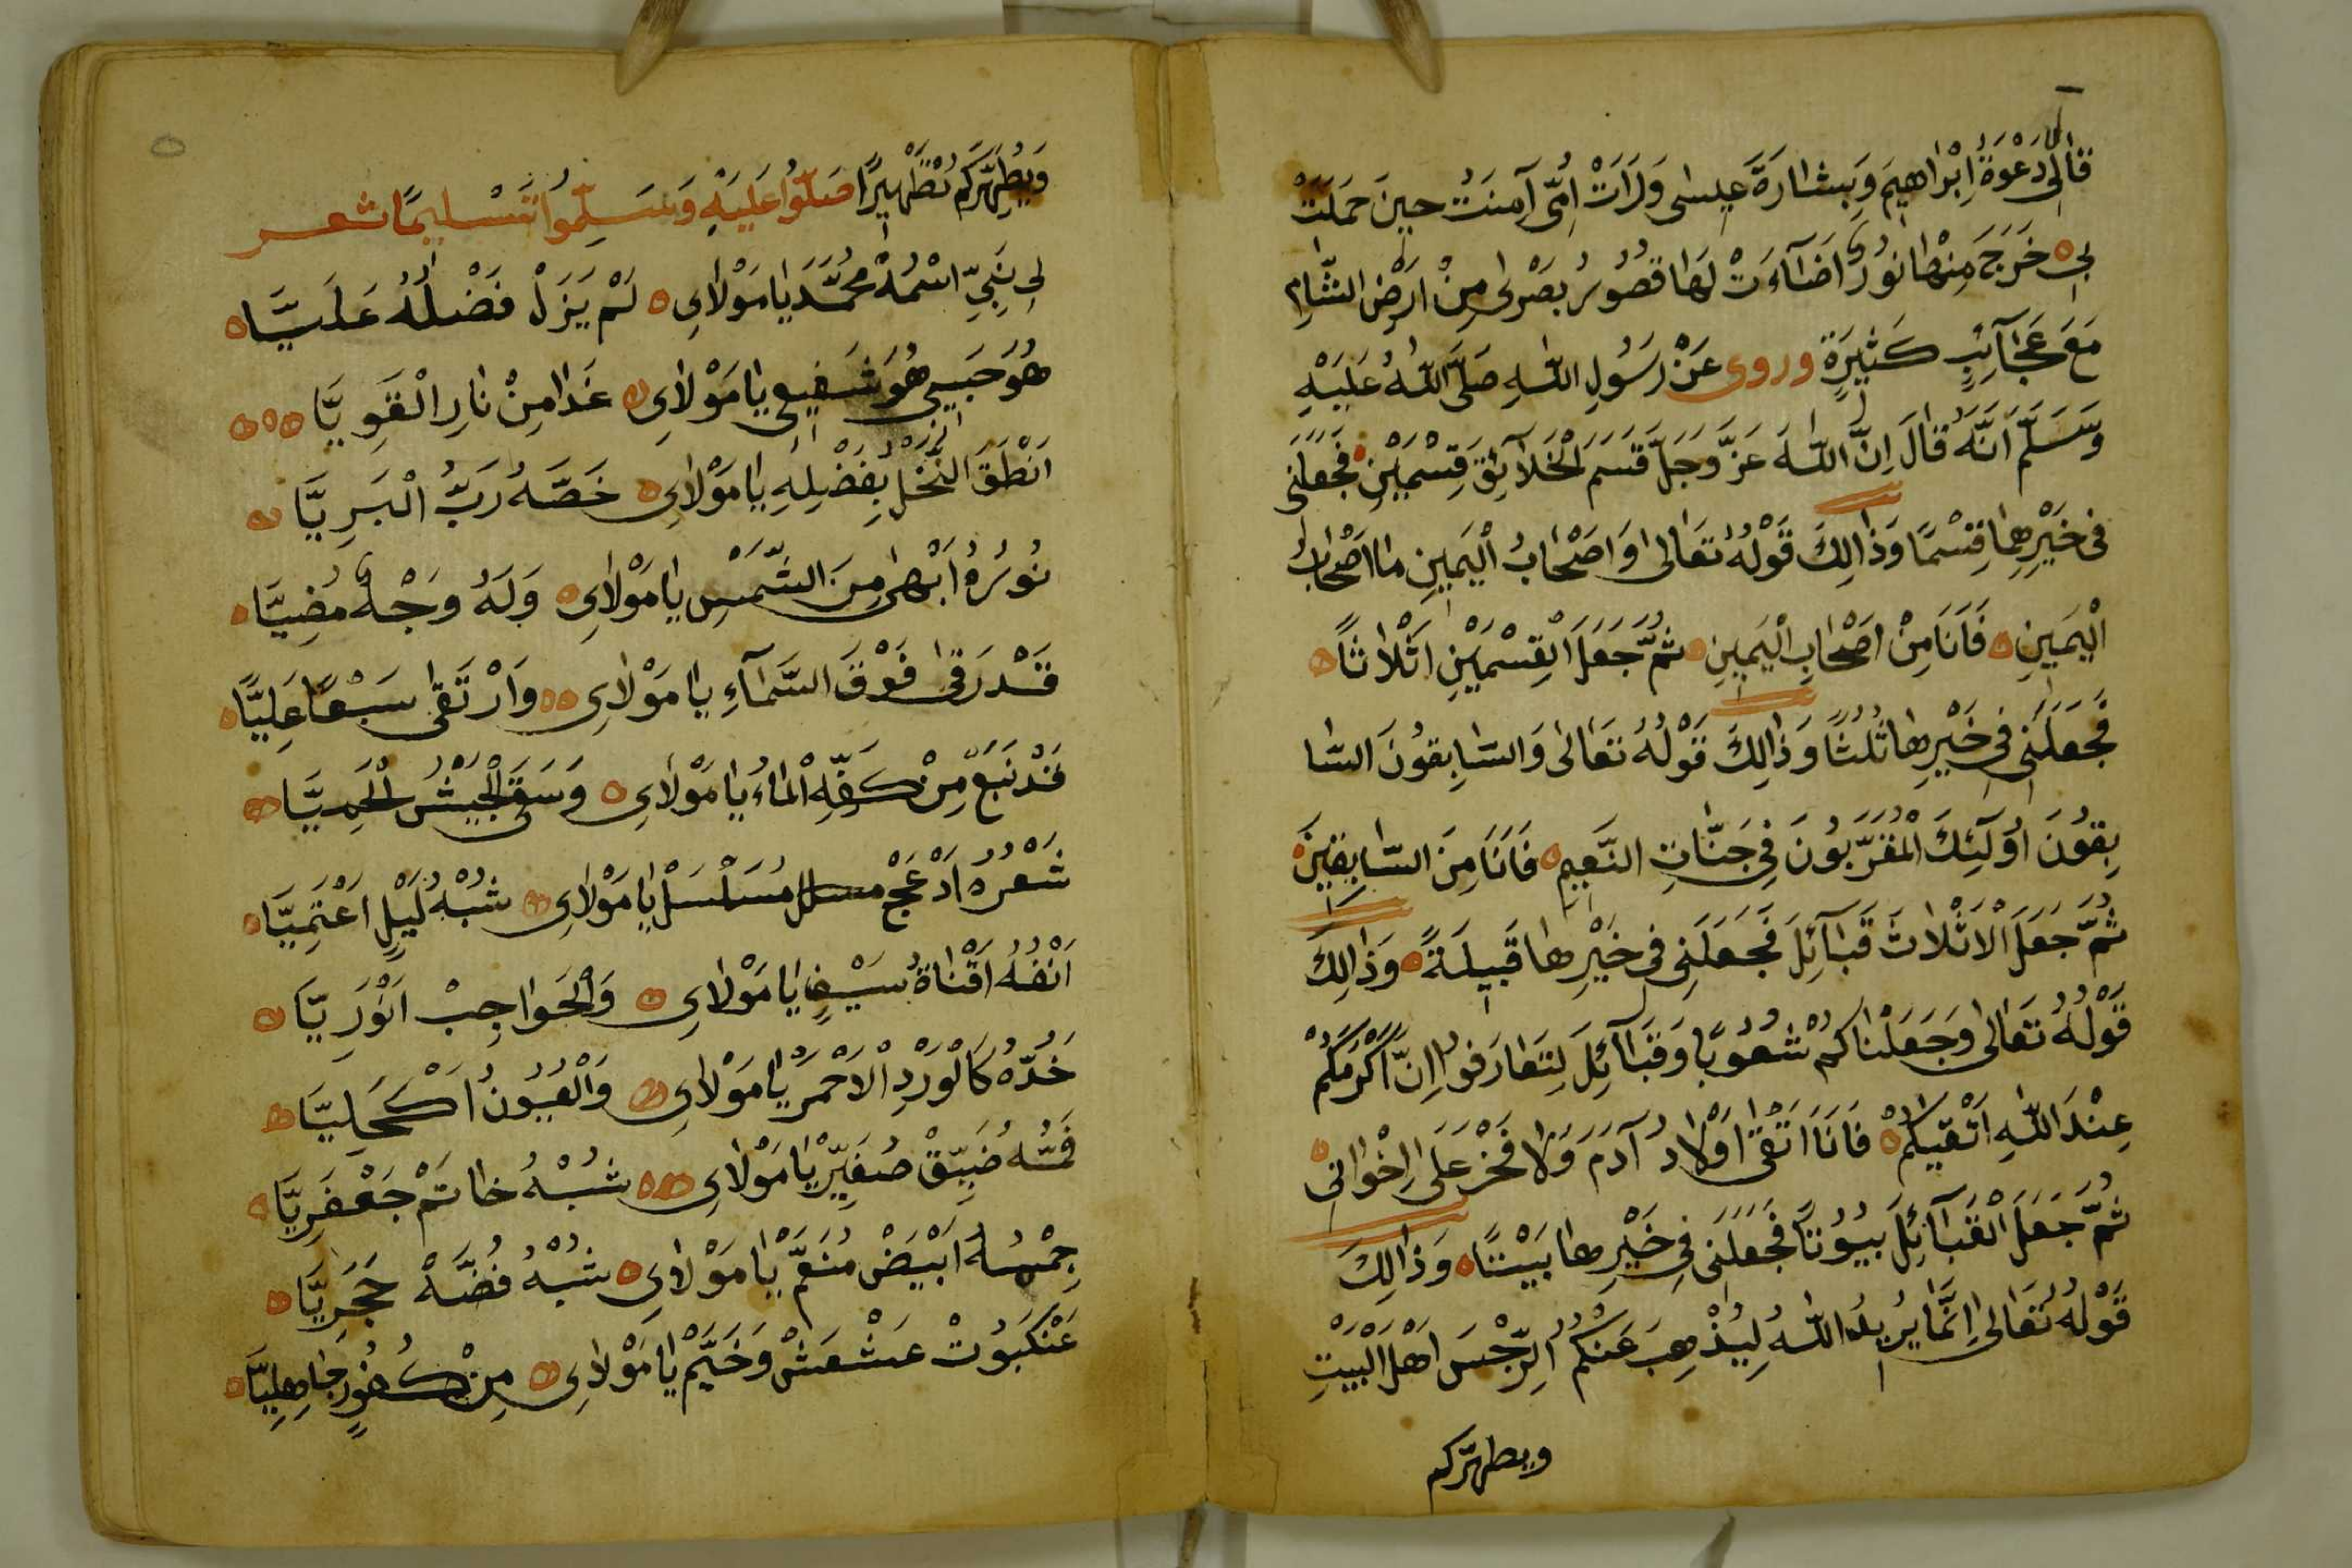 قَالَ اِلٰى دَعْوَةُ اِبْرَاهِيمَ وَبِشَارَةُ عِيسٰى وَرَاَتْ اُمِّى آمِنَتُ حِينَ حَمَلَتْ
بِى خَرَجَ مِنْهَا نُورٌ اَضَآءَتْ لَهَا قُصُورُ بَصْرٰى مِنْ اَرْضِ الشَّامِ
مَعَ عَجَآئِبٍ كَثِيرَةٍ وروى عَنْ رَسُولِ اللّٰهِ صَلَّى اللّٰهُ عَلَيْهِ
وَسَلَّمَ اَنَّهُ قَالَ اِنَّ اللّٰهَ عَزَّ وَجَلَّ قَسَمَ الْخَلَآئِقَ قِسْمَيْنِ فَجَعَلَنِى
فِى خَيْرِهِمَا قِسْمًا وَذٰالِكَ قَوْلُهُ تَعَالٰى وَاَصْحَابُ الْيَمِينِ مَا اَصْحَابُ
الْيَمِينِ فَاَنَا مِنْ اَصْحَابِ الْيَمِينِ ثُمَّ جَعَلَ الْقِسْمَيْنِ اَثْلَاثًا
فَجَعَلَنِى فِى خَيْرِهَا ثُلُثًا وَذٰالِكَ قَوْلُهُ تَعَالٰى وَالسَّابِقُونَ السَّا
بِقُونَ اُولٰئِكَ الْمُقَرَّبُونَ فِى جَنَّاتِ النَّعِيمِ فَاَنَا مِنَ السَّابِقِينَ
ثُمَّ جَعَلَ الْاَثْلَاثَ قَبَآئِلَ فَجَعَلَنِى فِى خَيْرِهَا قَبِيلَةً وَذٰالِكَ
قَوْلُهُ تَعَالٰى وَجَعَلْنَاكُمْ شُعُوبًا وَقَبَآئِلَ لِتَعَارَفُوا اِنَّ اَكْرَمَكُمْ
عِنْدَ اللّٰهِ اَتْقٰيكُمْ فَاَنَا اَتْقٰى اَوْلَادُ آدَمَ وَلَا فَخْرَ عَلٰى اِخْوَانِى
ثُمَّ جَعَلَ الْقَبَآئِلَ بُيُوتًا فَجَعَلَنِى فِى خَيْرِهَا بَيْتًا وَذٰالِكَ
قَوْلُهُ تَعَالٰى اِنَّمَا يُرِيدُ اللّٰهُ لِيُذْهِبَ عَنْكُمُ الرِّجْسَ اَهْلَ الْبَيْتِ
ويطهّركم
وَيُطَهِّرَكُمْ تَطْهِيرًا صَلُّوا عَلَيْهِ وَسَلِّمُوا تَسْلِيمًا شعر
لِى نَبِىٌّ اسْمُهُ مُحَمَّدْ يَا مَوْلَاىِ لَمْ يَزَلْ فَضْلُهُ عَلَيَّا
هُوَ حَبِيبِى هُوَ شَفِيعِى يَا مَوْلَاىِ غَدًا مِنْ نَارِ الْقَوِيَّا
اَنْطَقَ النَّخْلُ بِفَضْلِهِ يَا مَوْلَاىِ خَصَّهُ رَبُّ الْبَرِيَّا
نُورُهُ اَبْهٰى مِنَ الشَّمْسِ يَا مَوْلَاىِ وَلَهُ وَجْهٌ مُضِيَّا
قَدْ رَقٰى فَوْقَ السَّمَآءِ يَا مَوْلَاىِ وَارْتَقٰى سَبْعًا عَلِيَّا
قَدْ نَبَعْ مِنْ كَفِّهِ الْمَاءُ يَا مَوْلَاىِ وَسَقٰى الْجَيْشَ الْحَمِيَّا
شَعْرُهُ اَدْعَجْ مُسَلْسَلْ يَا مَوْلَاىِ شُبْهُ لَيْلٍ اَعْتَمِيَّا
اَنْفُهُ اَقْنَاةُ سَيْفٍ يَا مَوْلَاىِ وَالْحَوَاجِبْ اَنْوَرِيَّا
خَدُّهُ كَالْوَرْدِ الْاَحْمَرْ يَا مَوْلَاىِ وَالْعُيُونُ اَكْحَلِيَّا
فَمُّهُ ضَيِّقْ صُغَيِّرْ يَا مَوْلَاىِ شُبْهُ خَاتَمْ جَعْفَرِيَّا
جِسْمُهُ اَبْيَضْ مُنَعَّمْ يَا مَوْلَاىِ شُبْهُ فُضَّهْ حَجَرِيَّا
عَنْكَبُوتْ عَشْعَشْ وَخَيَّمْ يَا مَوْلَاىِ مِنْ كُفُورٍ جَاهِلِيَّا